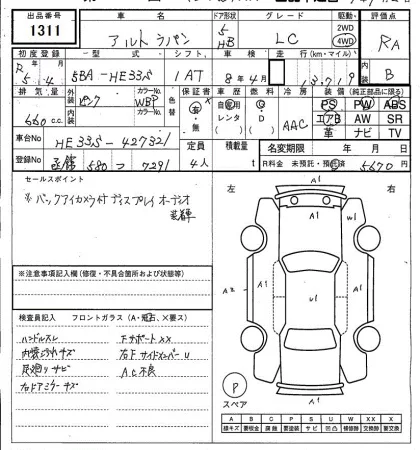 出品番号 車名 ドア形状 グレード 駆動 評価点
1311 アルトラパン 5 HB LC 2WD 4WD RA
初度登録 型式 シフト 車検 走行(km・マイル) 内装
R 5.4 5BA-HE33S 1AT 8年4月 B
排気量 外装 カラーNo. 色替 保証書 車歴 燃料 冷房 装備(純正部品に限る)
660cc 内装 ピンク カラーNo. WBP 有・無 自家用 レンタ G D AAC PS PW ABS
エアB AW SR
革 ナビ TV
車台No HE33S-427321 定員 積載量 名変期限 年 月 日
登録No 580 7291 4人 t R料金 未預託・預託済 5670円
セールスポイント
※バックアイカメラ付ディスプレイオーディオ
装着車
左 右
A1
A1 W1
A2 A1 U1 A1
A1
※注意事項記入欄(修復・不具合箇所および状態等)
検査員記入 フロントガラス(A・飛石、×要ス)
ハンドルスレ FサポートXX
内装 キズ 右FサイドメンバーU
足廻りサビ AC不良
右ドアミラーキズ
P
スペア
A B C P S U W X XX
線キズ 要板金 腐蝕 要塗装 サビ 凹凸 補修跡 要交換 交換済